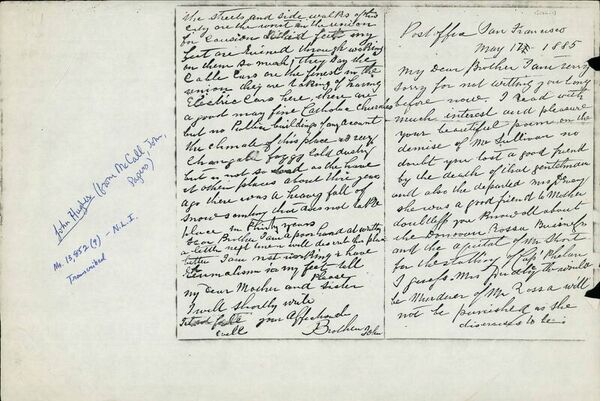 Post offce San Francisco
May 17th 1885
My Dear Brother I am very
sorry for not writing you long
before now. I read with
much interest and pleasure
your beautiful poem on the
demise of Mr Sullivan no
doubt you lost a good friend
by the death of that gentleman
and also the departed
she was a good friend to Mother
doubtless you know all about
the Donovan Rossa Business
and the aquital of Mr Short
for the stabbing of Capt Phelan
I guess Mrs Dudley the would
be Murderer of Mr Rossa will
not be punished as she
deserves to be
the streets and side walks of this
city are the worst in the union
for my
feet are Ruined through walking
on them so much they say the
Cable Cars are the finest in the
union they are talking of having
Electric Cars here, there are
a good many fine Catholic Churches
but no Public buildings of any account
the climate of this place is very
Changable foggy Cold dusty
but is not so as the have
it other places about three years
ago there was a heavy fall of
Snow somthing that does not take
place in thirty years
Dear Brother I am a poor hand at writing
little next time I will describ the place
better I am not working I have
Rumatism in my feet tell
Please
my Dear Mother and sister
I will shortly write
well your Affectionate
Brother John
John Hughes (from McCall, John,
Papers)
Ms. 13,852 (9) - N.L.I.
Transcribed